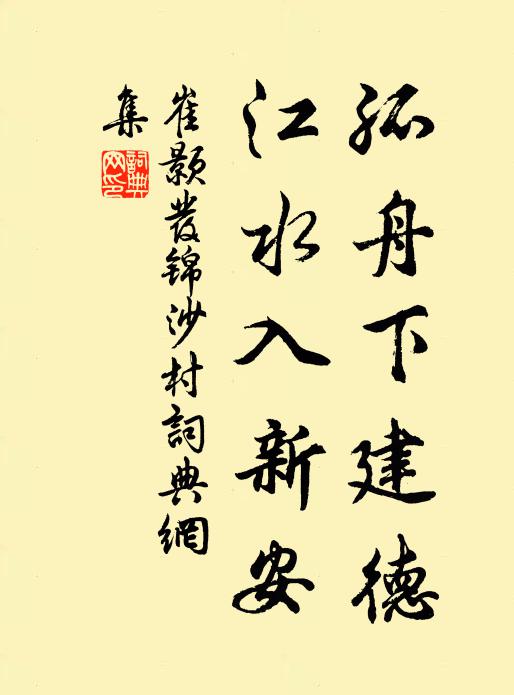 孤舟下建德
江水入新安
崔颢发锦沙村詞典網
集
詞典网印